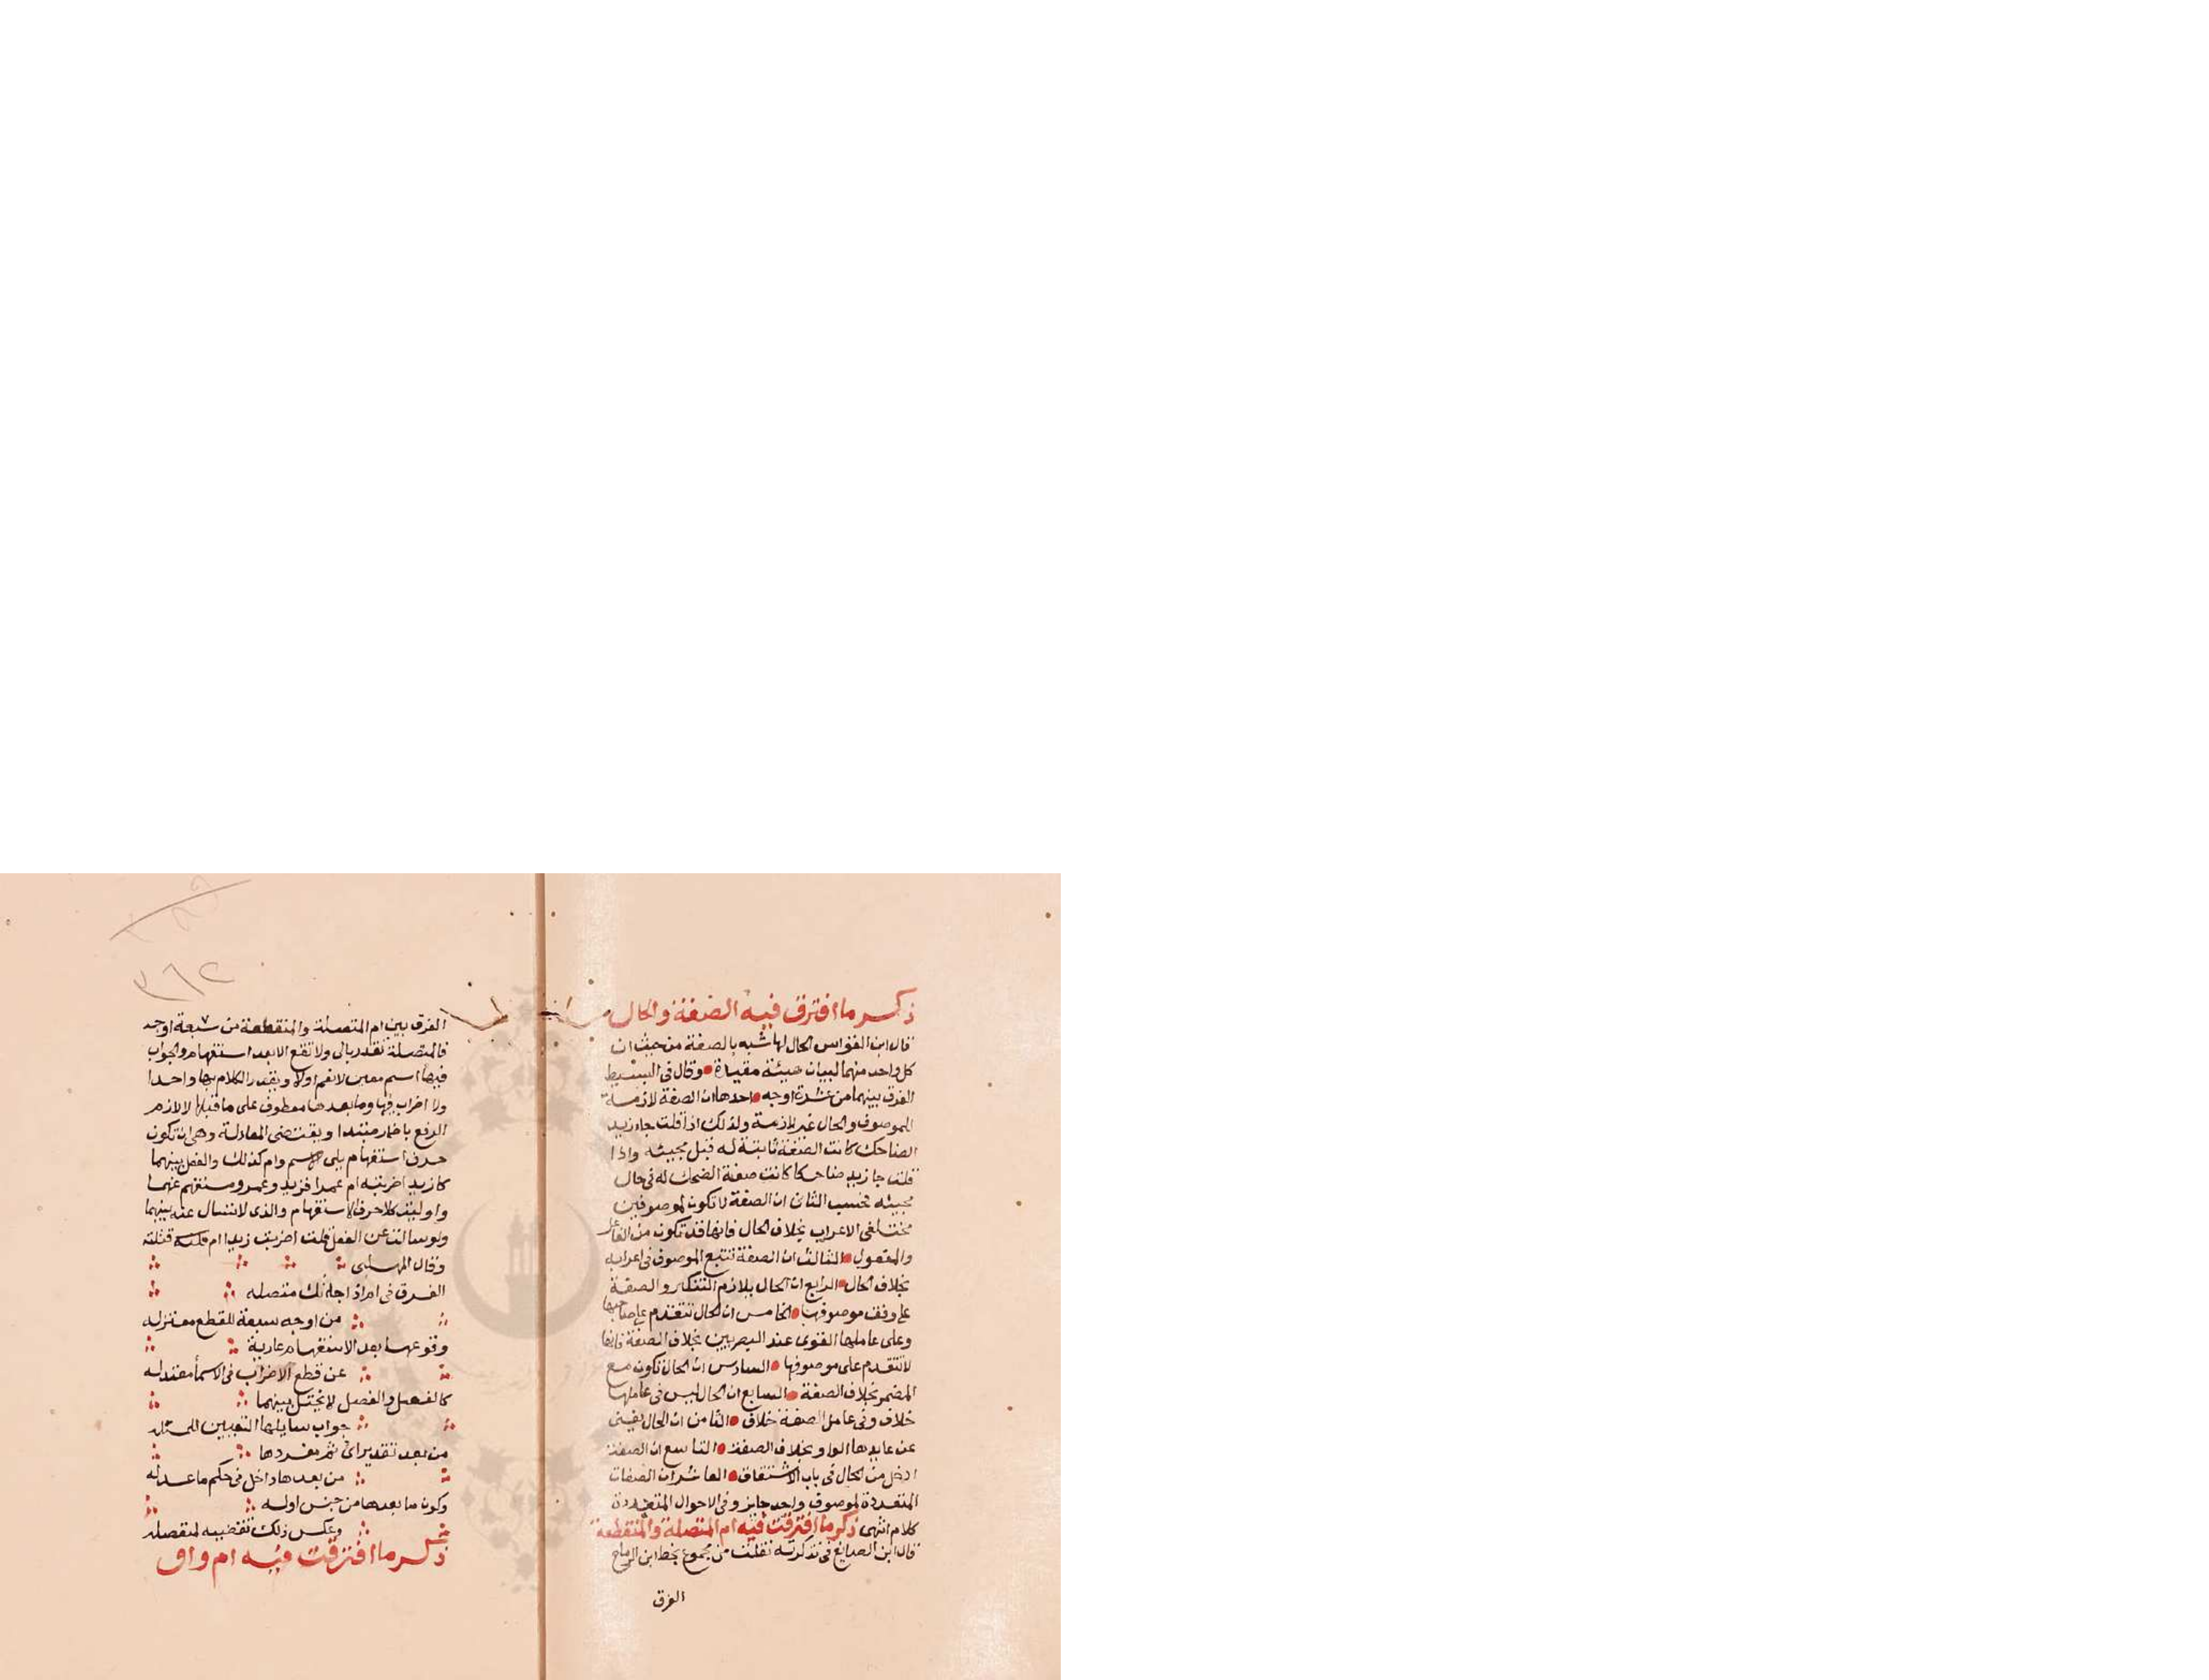 ذكر ما افترق فيه الصفة والحال
قال ابن القواس الحال لها شبه بالصفة من حيث ان
كل واحد منهما لبيان هيئة مقيدة وقال في البسيط
الفرق بينهما من عشرة اوجه احدها ان الصفة لازمة
للموصوف والحال غير لازمة ولذلك اذا قلت جا زيد
الضاحك كانت الصفة ثابتة له قبل مجيئه واذا
قلت جا زيد ضاحكا كانت صفة الضحك له في حال
مجيئه فحسب الثاني ان الصفة لا تكون لموصوفين
مختلفي الاعراب بخلاف الحال فانها قد تكون من الفاعل
والمفعول الثالث ان الصفة تتبع الموصوف في اعرابه
بخلاف الحال الرابع ان الحال يلازم التنكير والصفة
على وفق موصوفها الخامس ان الحال تتقدم على صاحبها
وعلى عاملها القوى عند البصريين بخلاف الصفة فانها
لا تتقدم على موصوفها السادس ان الحال تكون مع
المضمر بخلاف الصفة السابع ان الحال ليس في عاملها
خلاف وفي عامل الصفة خلاف الثامن ان الحال يغني
عن عايدها الواو بخلاف الصفة التاسع ان الصفة
ادخل من الحال في باب الاشتقاق العاشر ان الصفات
المتعددة لموصوف واحد جايز وفي الاحوال المتعددة
كلام انتهى ذكر ما افترقت فيه ام المتصلة والمنقطعة
قال ابن الصايغ في تذكرته نقلت من مجموع بخط ابن الرماح
الفرق
٣٦٢
الفرق بين ام المتصلة والمنقطعة من سبعة اوجه
فالمتصلة تقدر باي ولا تقع الا بعد استفهام والجواب
فيها اسم معين لا نعم اولا ويقدر الكلام بها واحدا
ولا اضراب فيها وما بعدها معطوف على ما قبلها لا لازم
الرفع باضمار مبتدا ويقتضى المعادلة وهي ان تكون
حرف استفهام يلى الاسم وام كذلك والفعل بينهما
كازيد اضربته ام عمرا فزيد وعمرو مستفهم عنهما
واوليت كلا حرف الاستفهام والذي لا تسال عنه بينهما
ولو سالت عن الفعل قلت اضربت زيدا ام قتلته
وقال المهلبى
الفرق في ام اذا جاتك متصله
من اوجه سبعة للقطع معتزله
وقوعها بعد الاستفهام عارية
عن قطع الاضراب في الاسما معتدله
كالفعل والفصل لا يختل بينهما
جواب سايلها التعيين للمسئله
من بعد تقدير اي ثم مفردها
من بعدها داخل في حكم ما عدله
وكون ما بعدها من جنس اوله
وعكس ذلك تقضيه لمنفصله
ذكر ما افترقت فيه ام واو